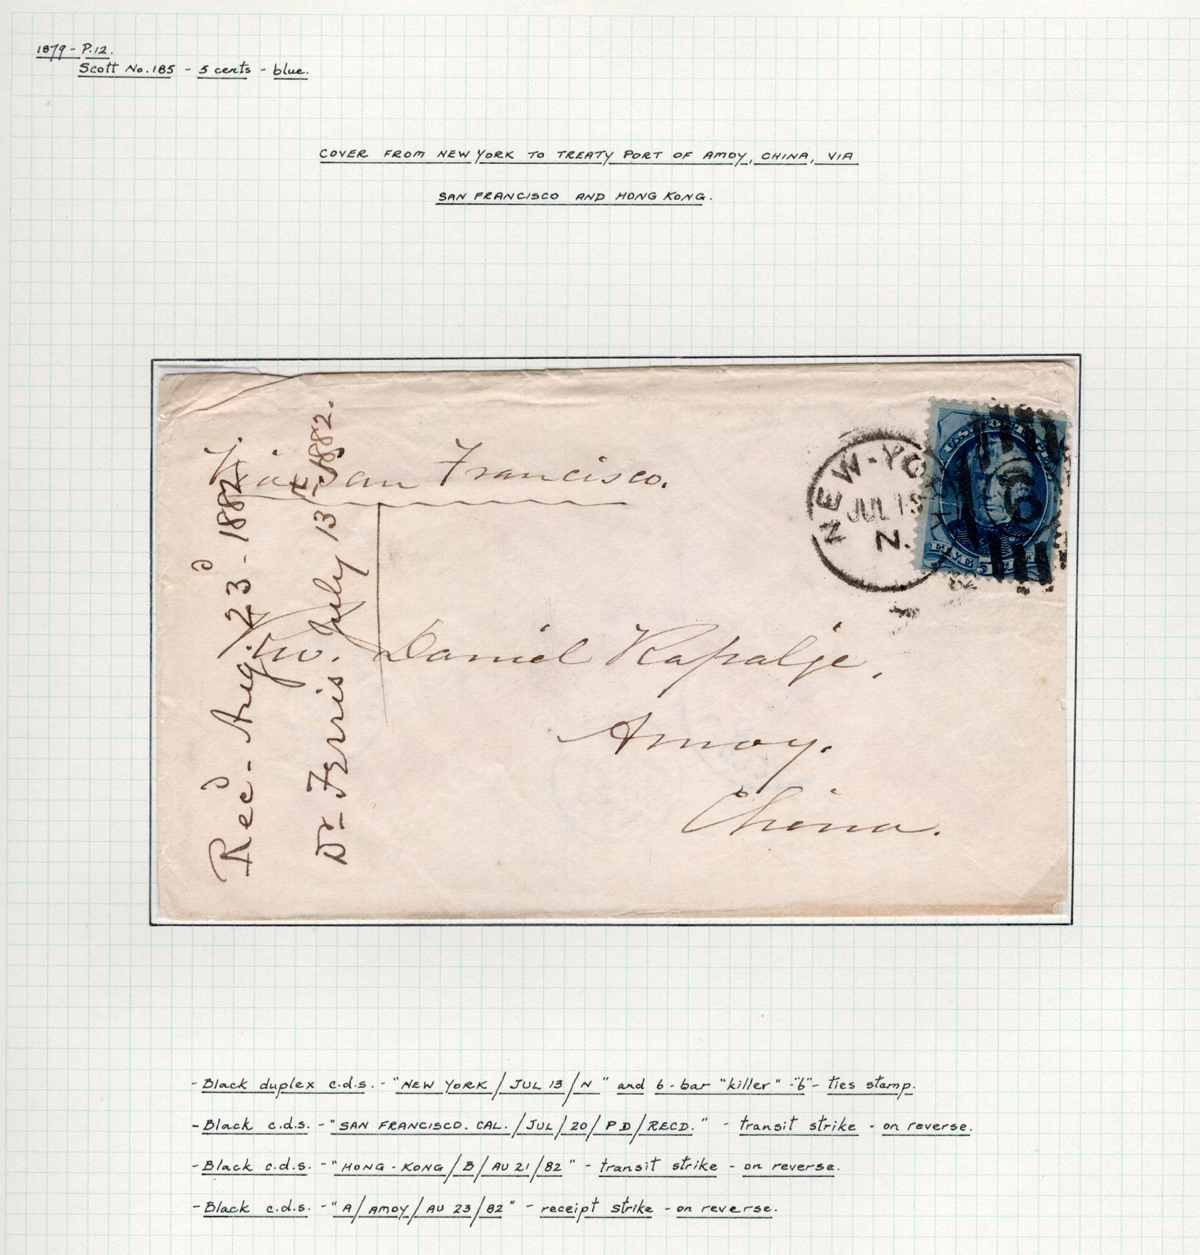 1879 - P.12.
Scott No. 185 - 5 cents - blue.
COVER FROM NEW YORK TO TREATY PORT OF AMOY, CHINA, VIA
SAN FRANCISCO AND HONG KONG.
Via San Francisco.
Daniel Rapalje,
Amoy.
China.
Rec'd - Aug. 23d - 1882.
Dr Ferris. July 13th 1882.
NEW-YO
JUL 13
N.
6
FIVE 5
- Black duplex c.d.s. - "NEW YORK / JUL 13 / N" and 6-bar "killer" - "6" - ties stamp.
- Black c.d.s. - "SAN FRANCISCO. CAL. / JUL / 20 / P D / RECD." - transit strike - on reverse.
- Black c.d.s. - "HONG-KONG / B / AU 21 / 82" - transit strike - on reverse.
- Black c.d.s. - "A / AMOY / AU 23 / 82" - receipt strike - on reverse.